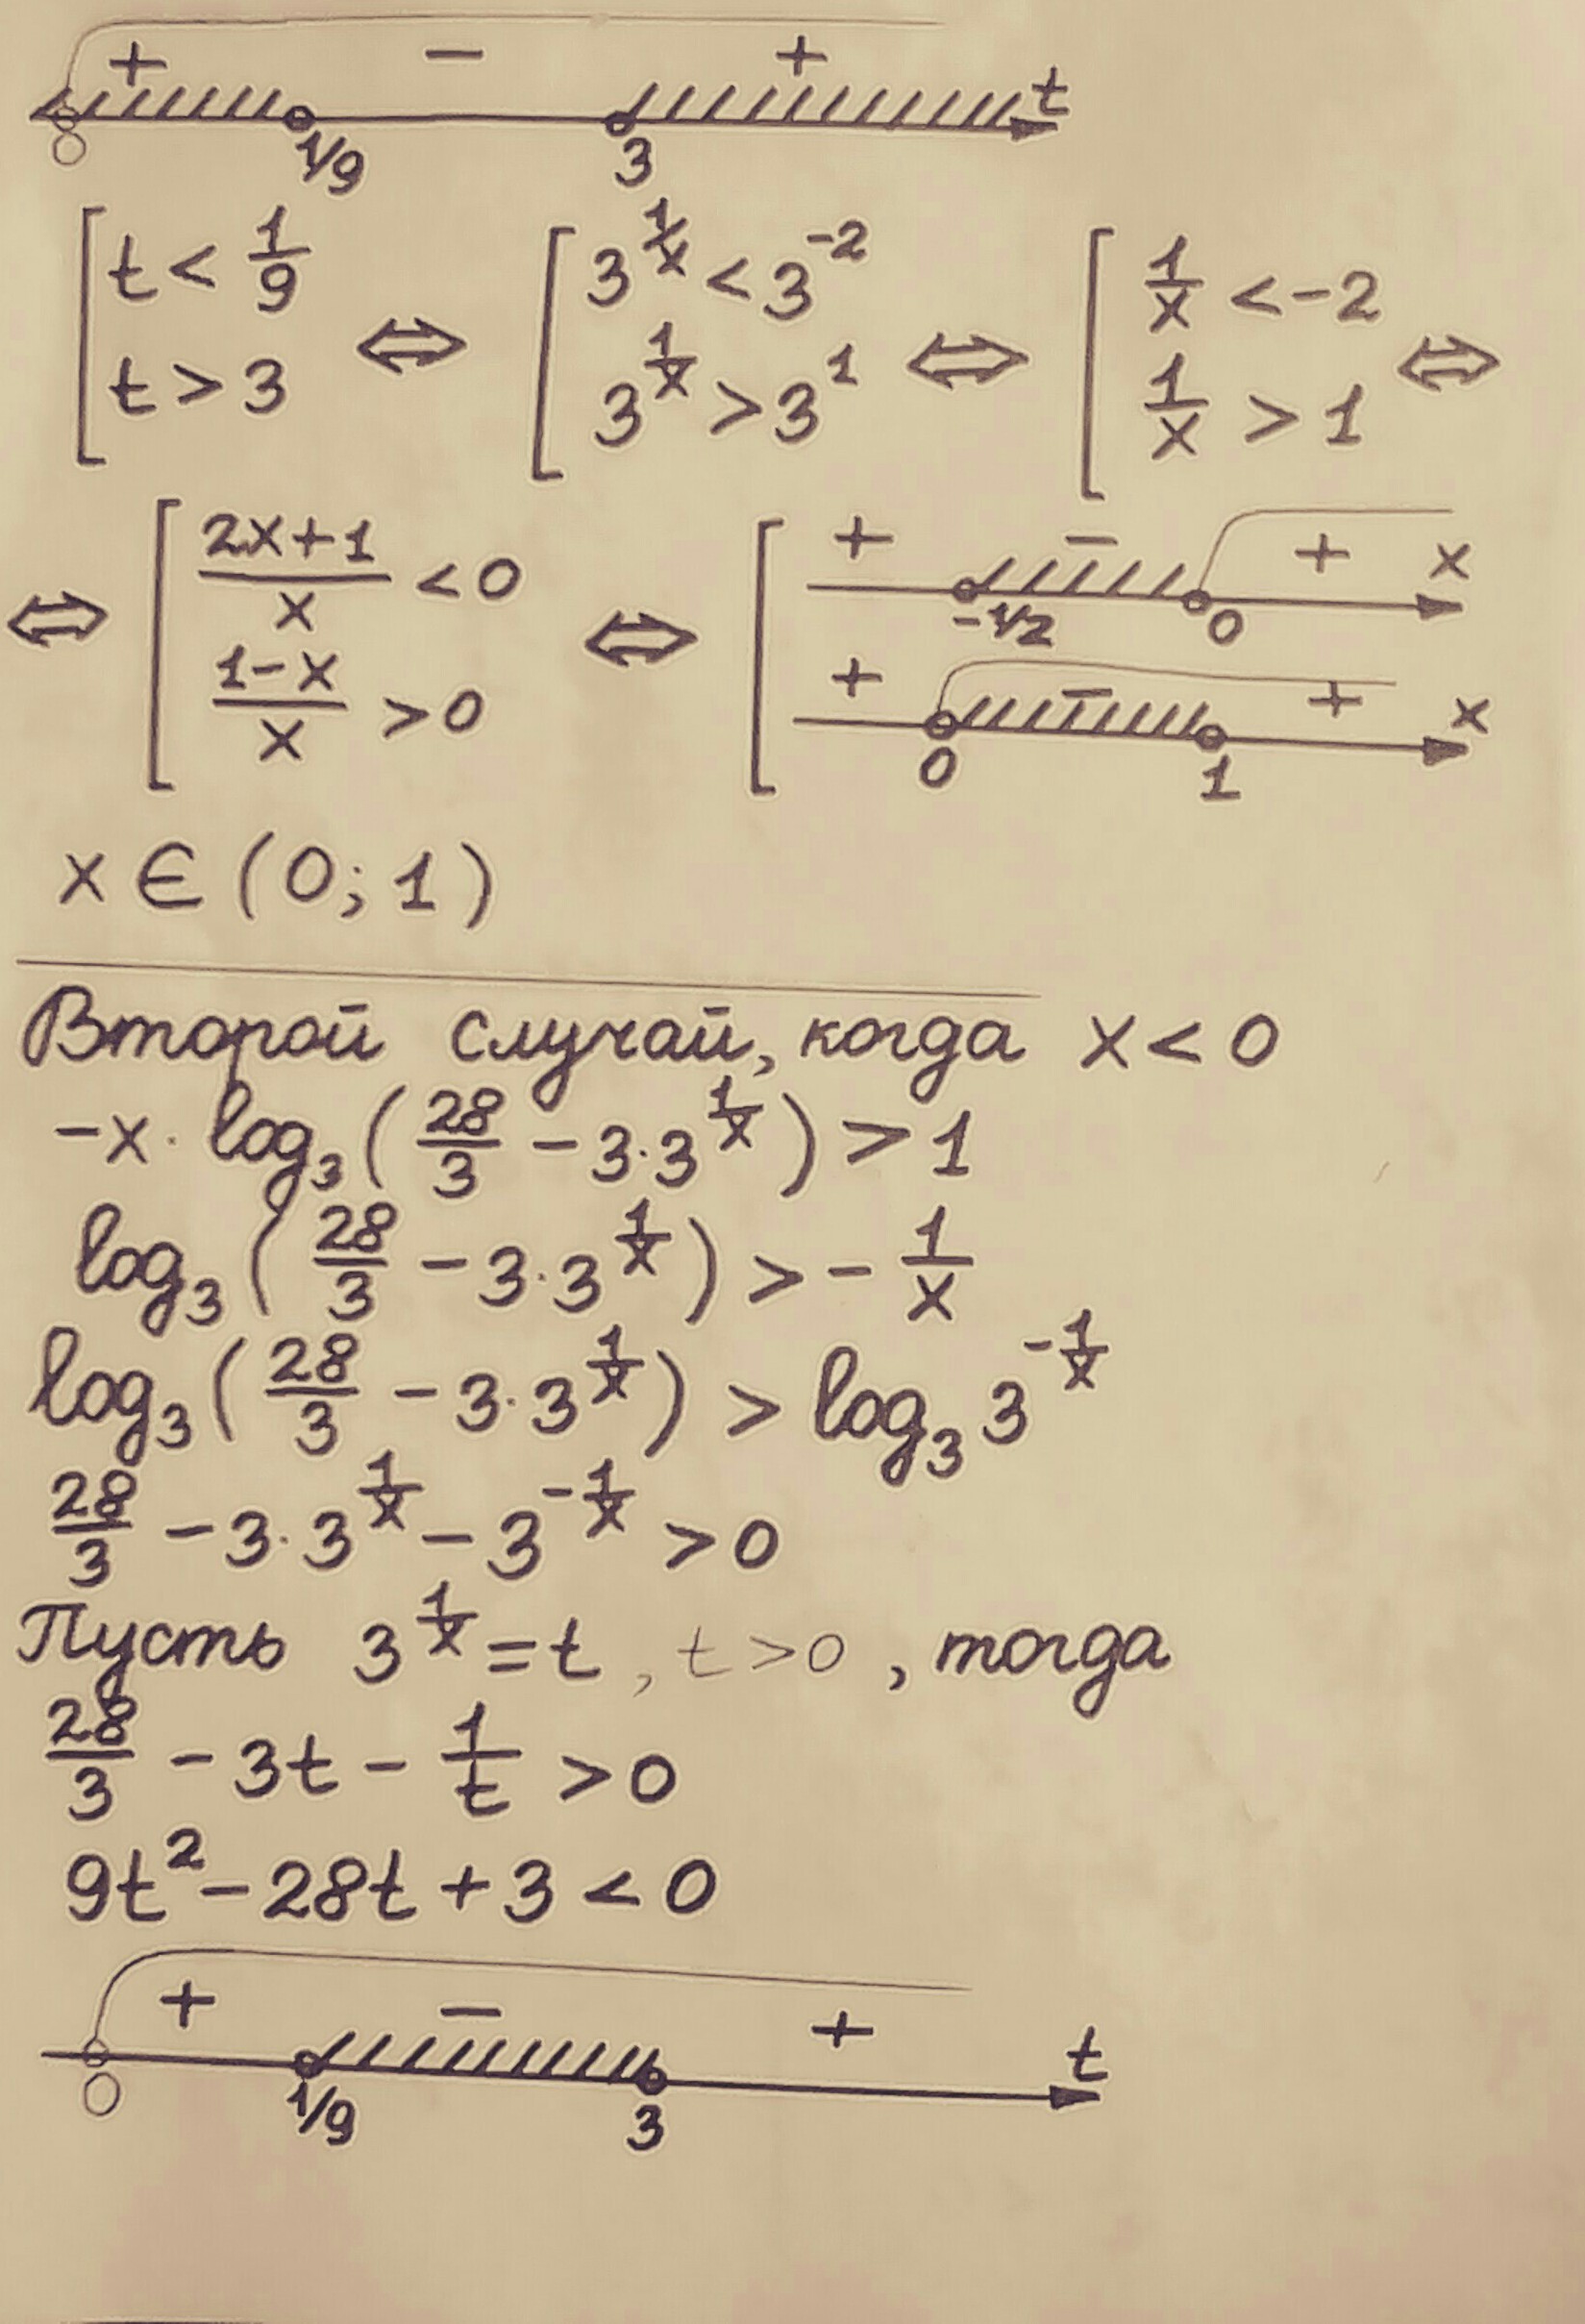 + − + t
0 1/9 3
[ t < 1/9 ; t > 3 ⇔ [ 3^(1/x) < 3^(-2) ; 3^(1/x) > 3^1 ⇔ [ 1/x < -2 ; 1/x > 1 ⇔
⇔ [ (2x+1)/x < 0 ; (1-x)/x > 0 ⇔ [ + − + x
-1/2 0
+ − + x
0 1
x ∈ (0; 1)
Второй случай, когда x < 0
-x · log₃(28/3 - 3·3^(1/x)) > 1
log₃(28/3 - 3·3^(1/x)) > - 1/x
log₃(28/3 - 3·3^(1/x)) > log₃ 3^(-1/x)
28/3 - 3·3^(1/x) - 3^(-1/x) > 0
Пусть 3^(1/x) = t, t > 0, тогда
28/3 - 3t - 1/t > 0
9t² - 28t + 3 < 0
+ − + t
0 1/9 3